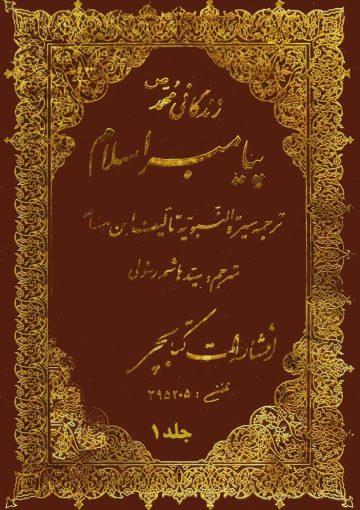 زندگانی محمد (ص)
پیامبر اسلام
ترجمه سیرة النبویه تألیف ابن هشام
مترجم: سید هاشم رسولی
انتشارات کتابچی
تلفن: ۳۹۵۲۰۵
جلد ۱